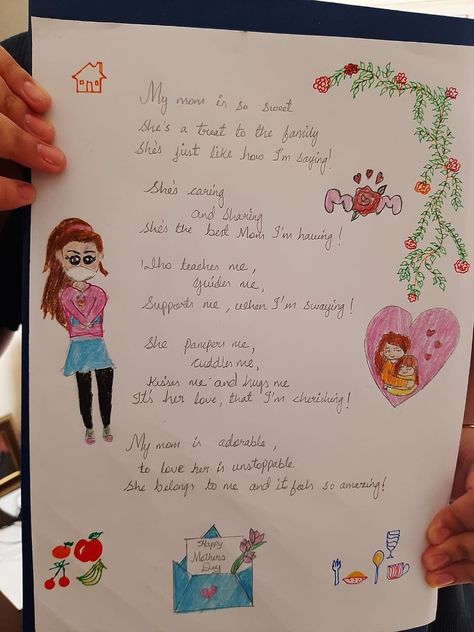 My mom is so sweet
She's a treat to the family
She's just like how I'm saying!
She's caring
and sharing
She's the best Mom I'm having!
MOM
Who teaches me,
Guides me,
Supports me, when I'm swaying!
She pampers me,
Cuddles me,
Kisses me and hugs me
It's her love, that I'm cherishing!
My mom is adorable,
to love her is unstoppable
She belongs to me and it feels so amazing!
Happy
Mothers
Day